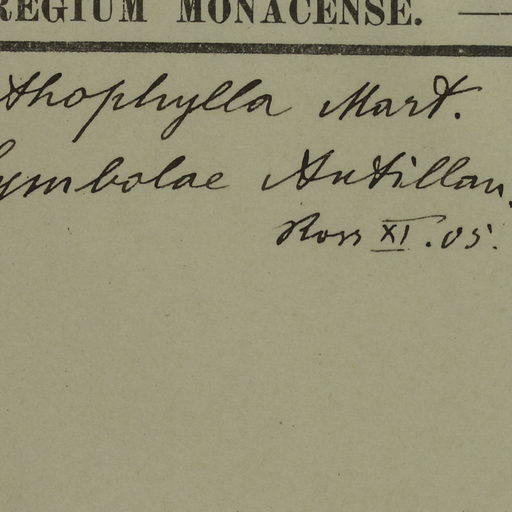 REGIUM MONACENSE.
thophylla Mart.
Symbolae Antillan.
Ross XI.05.